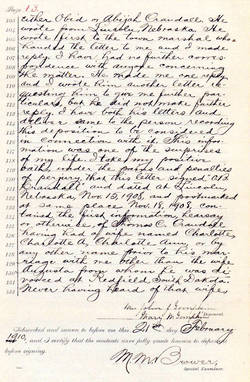 Page 13.
either Obid or Abijah Crandall. He
wrote from Lincoln, Nebraska. He
wrote first to the town marshal who
handed the letter to me and I made
reply. I have had no further corres-
pondence with anyone concerning
the matter. He made me one reply
and I wrote him another letter re-
questing him to give me further par-
ticulars, but he did not make further
reply. I have both his letters and
to the person recording
this deposition to be considered
in connection with it. This infor-
mation was one of the surprises
of my life. I take my positive
oath, under the pains and penalties
of perjury, that this letter signed
Crandall, and dated at Lincoln,
Nebraska, Nov. 15, 1908, and postmarked
at same place Nov. 18, 1908, con-
tained the first information, hearsay
or otherwise, of Thomas C. Crandall
having had a wife named Charlotte,
Charlotte A., Charlotte Ann, or by
any other name prior to his mar-
riage with me other than the wife
Augusta from whom he was di-
vorced at Redfield, South Dakota.
Never having heard of that wife
Subscribed and sworn to before me this 21st day of February
1910, and I certify that the contents were fully made known to deponent
before signing.
M. M. Brower,
Special Examiner.